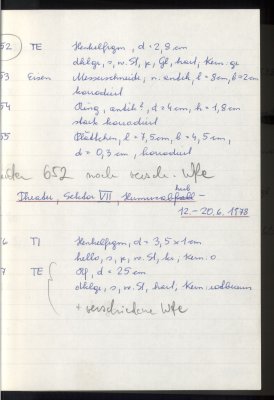 52 TE Henkelfrgm, d = 2,8 cm
dklge, s, w. St, k, Gl, hart, Kern: ge
53 Eisen Messerschneide, n. antik, l = 8cm, b = 2cm
korrodiert
54 Ring, antik?, d = 4cm, h = 1,8 cm
stark korrodiert
55 Plättchen, l = 7,5cm, b = 4,5 cm,
d = 0,3 cm, korrodiert
652 noch versch. Wfe
Theater, Sektor VII, Humusabhub –
12. – 20.6. 1978
6 TI Henkelfrgm, d = 3,5 x 1 cm
hello, s, k, w. St, hr, Kern: o
7 TE d = 25 cm
dklge, s, w. St, hart, Kern: rotbraun
+ verschiedene Wfe